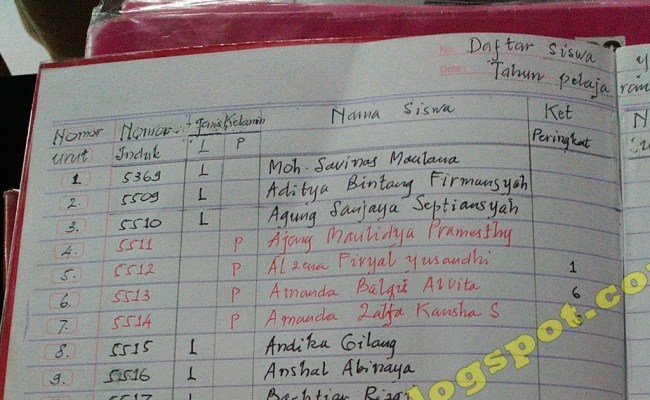 No. Daftar Siswa
Date: Tahun pelaja
Nomor urut Nomor Induk Jenis Kelamin L P Nama Siswa Ket Peringkat
1. 5369 L Moh. Savinas Maulana
2. 5509 L Aditya Bintang Firmansyah
3. 5510 L Agung Sanjaya Septiansyah
4. 5511 P Ajeng Maulidya Pramesthy
5. 5512 P Alzena Firyal Yusandhi 1
6. 5513 P Amanda Balqis Alvita 6
7. 5514 P Amanda Zalfa Kansha S
8. 5515 L Andika Gilang
9. 5516 L Anshal Abinaya
5517 L Bachtiar
logspot.co